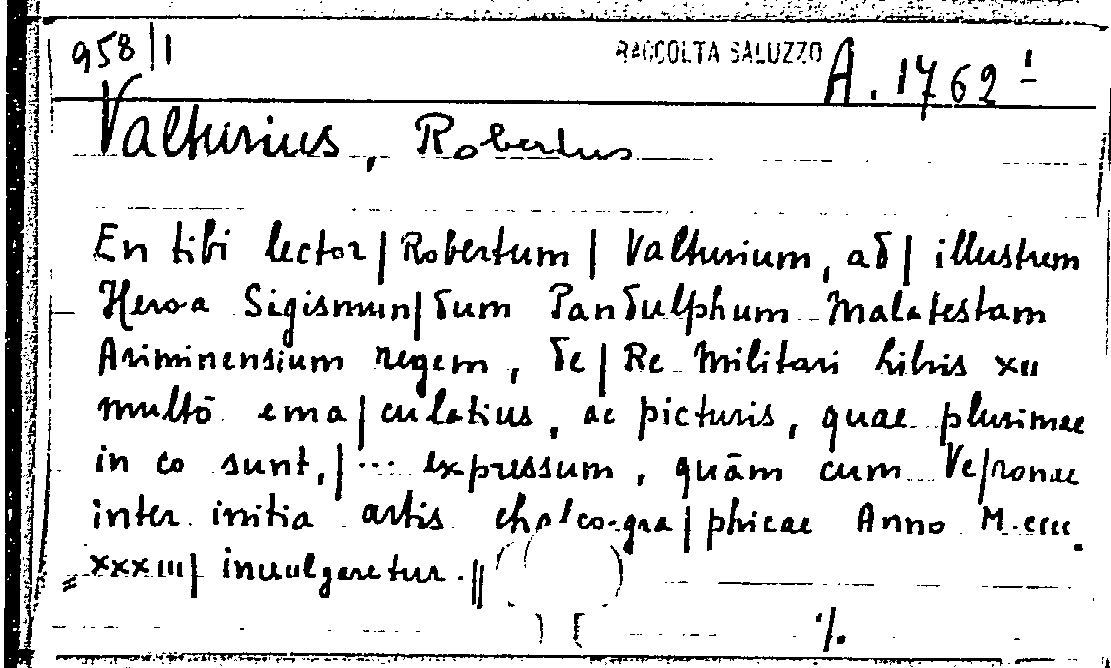 958/1 RACCOLTA SALUZZO A. 1762 1
Valturius, Robertus
En tibi lector | Robertum | Valturium, ad | illustrem
Heroa Sigismun|dum Pandulphum Malatestam
Ariminensium regem, de | Re Militari Libris XII
multō ema|culatius, ac picturis, quae plurimae
in eo sunt, | ... expressum, quām cum Ve|ronae
inter initia artis chalco-gra|phicae Anno M.cccc.
XXXIII| inuulgaretur. ||
) (
%.